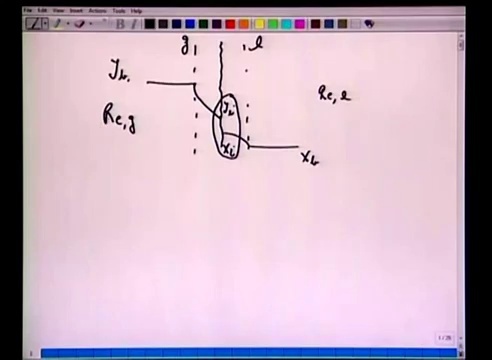 File Edit View Insert Actions Tools Help
g, , l
y_b
Re,g
Re,l
y_i
x_i
x_b
1
1 / 25